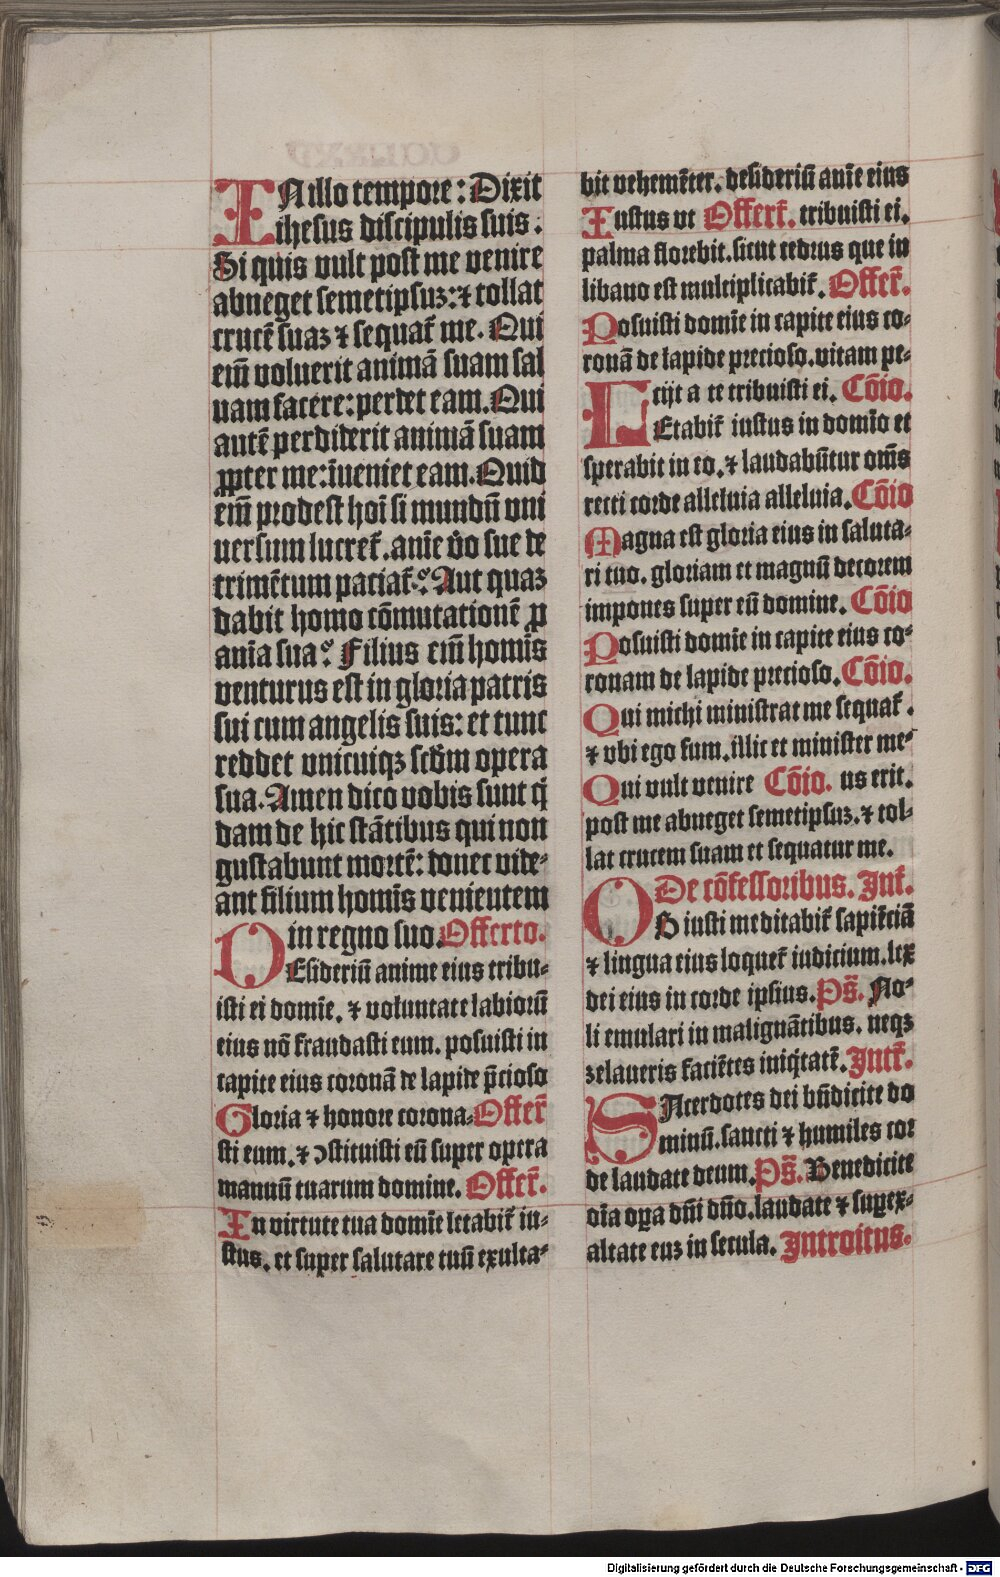 IN illo tempore: Dixit
ihesus discipulis suis.
Si quis vult post me venire
abneget semetipsuꝫ: ⁊ tollat
crucē suaꝫ ⁊ sequat᷑ me. Qui
em̄ voluerit animā suam sal
uam facere: perdet eam. Qui
autē perdiderit animā suam
ꝓpter me: īueniet eam. Quid
em̄ prodest hoī si mundū vni
uersum lucret᷑. anīe v̄o sue de
trimētum paciat᷑? Aut quaꝫ
dabit homo cōmutationē ꝓ
anīa sua? Filius em̄ homīs
venturus est in gloria patris
sui cum angelis suis: et tunc
reddet vnicuiqꝫ scd̄m opera
sua. Amen dico vobis sunt q̄
dam de hic stātibus qui non
gustabunt mortē: donec vide-
ant filium homīs venientem
in regno suo. Offerto.
DEsideriū anime eius tribu-
isti ei domīe. ⁊ voluntate labiorū
eius nō fraudasti eum. posuisti in
capite eius coronā de lapide p̄cioso
Gloria ⁊ honore corona- Offer̄
sti eum. ⁊ ꝯstituisti eū super opera
manuū tuarum domine. Offer̄.
In virtute tua domīe letabit᷑ iu-
stus. et super salutare tuū exulta-
bit vehemēter. desideriū anīe eius
Iustus vt Offert᷑. tribuisti ei.
palma florebit. sicut cedrus que in
libano est multiplicabit᷑. Offer̄.
Posuisti domīe in capite eius co-
ronā de lapide precioso. vitam pe-
cijt a te tribuisti ei. Cōio.
LEtabit᷑ iustus in domīo et
sperabit in eo. ⁊ laudabūtur om̄s
recti corde alleluia alleluia. Cōio
Magna est gloria eius in saluta-
ri tuo. gloriam et magnū decorem
impones super eū domine. Cōio
Posuisti domīe in capite eius co-
ronam de lapide precioso. Cōio.
Qui michi ministrat me sequat᷑.
⁊ vbi ego sum. illic et minister me-
Qui vult venire Cōio. us erit.
post me abneget semetipsuꝫ. ⁊ tol-
lat crucem suam et sequatur me.
De cōfessoribus. Int᷑.
OS iusti meditabit᷑ sapiēciā
⁊ lingua eius loquet᷑ iudicium. lex
dei eius in corde ipsius. Ps̄. No-
li emulari in malignātibus. neqꝫ
zelaueris faciētes iniq̄tatē. Intr̄.
SAcerdotes dei bn̄dicite do
minū. sancti ⁊ humiles cor
de laudate deum. Ps̄. Benedicite
oīa oꝑa dn̄i dn̄o. laudate ⁊ suꝑex-
altate euꝫ in secula. Introitus.
Digitalisierung gefördert durch die Deutsche Forschungsgemeinschaft - DFG